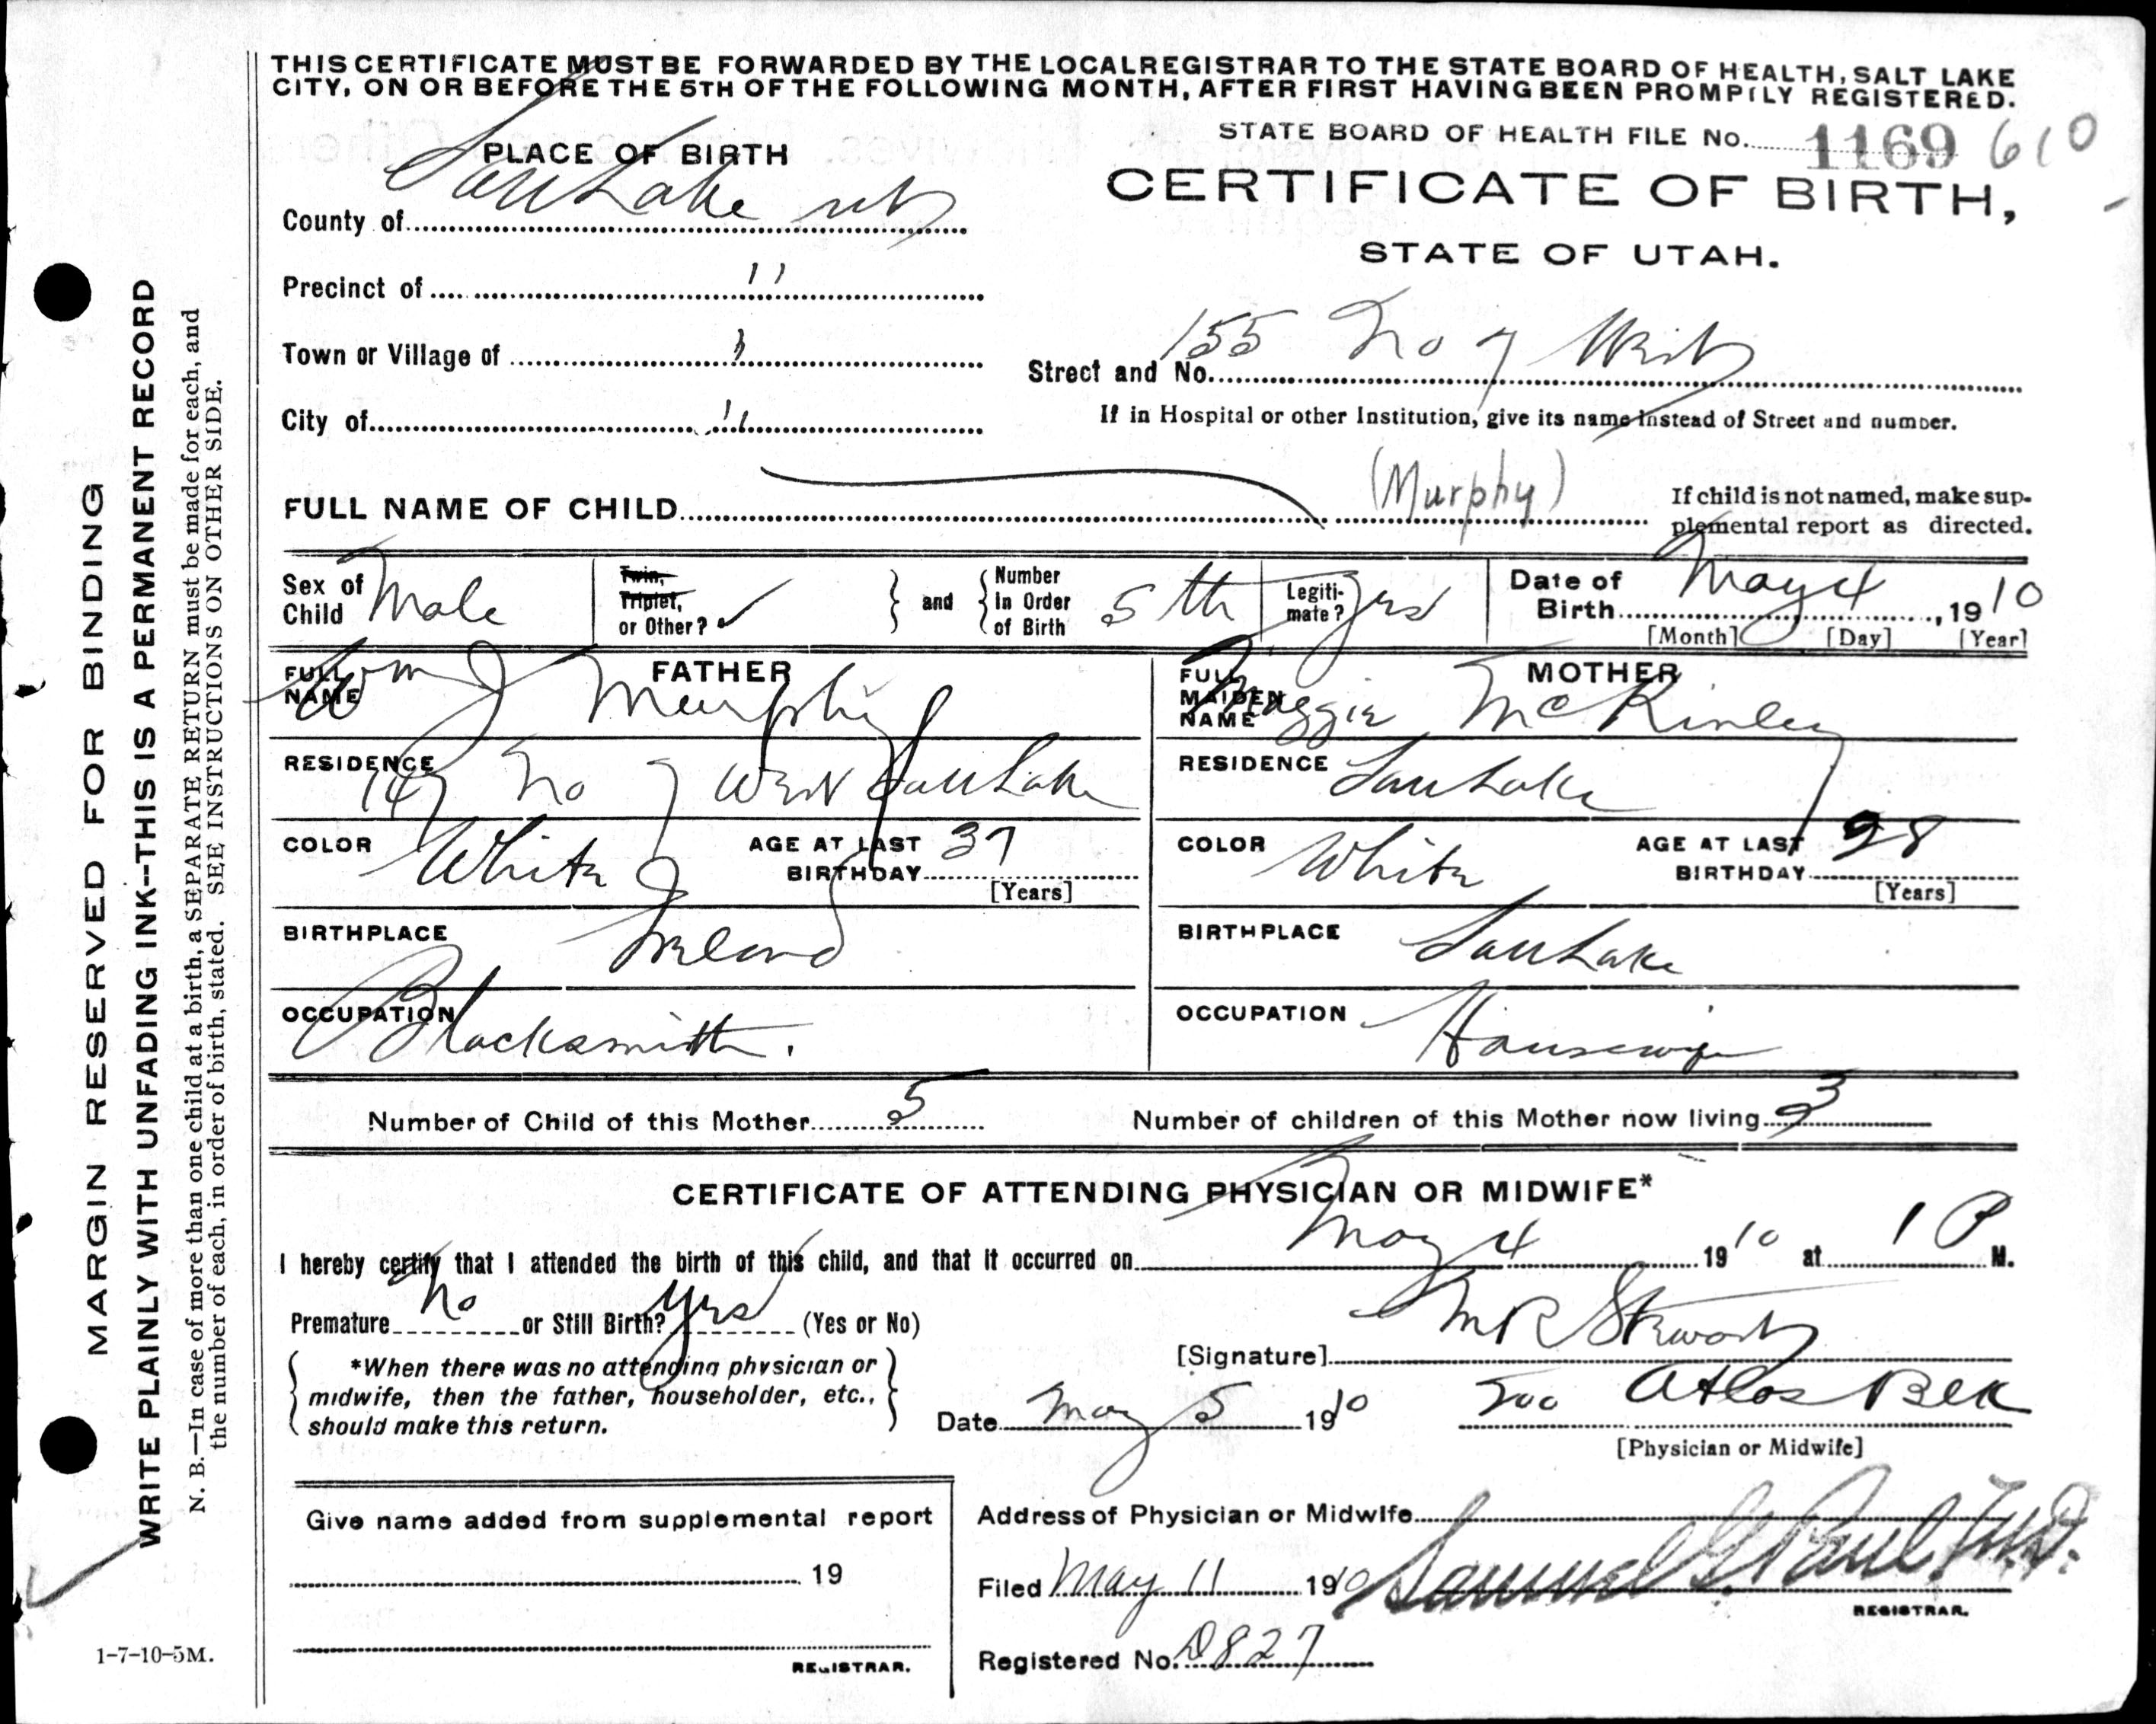 THIS CERTIFICATE MUST BE FORWARDED BY THE LOCAL REGISTRAR TO THE STATE BOARD OF HEALTH, SALT LAKE
CITY, ON OR BEFORE THE 5TH OF THE FOLLOWING MONTH, AFTER FIRST HAVING BEEN PROMPTLY REGISTERED.
STATE BOARD OF HEALTH FILE No. 1169 610
PLACE OF BIRTH
CERTIFICATE OF BIRTH,
STATE OF UTAH.
County of Salt Lake
Precinct of "
Town or Village of "
City of "
Street and No. 155 No 7 West
If in Hospital or other Institution, give its name instead of Street and number.
FULL NAME OF CHILD (Murphy)
If child is not named, make sup-
plemental report as directed.
Sex of Child Male
Twin, Triplet, or Other? ✓ and Number In Order of Birth 5th
Legiti-mate? yes
Date of Birth May 4, 1910
[Month] [Day] [Year]
FATHER
FULL NAME Wm J Murphy
RESIDENCE 147 No 7 West Salt Lake
COLOR White AGE AT LAST BIRTHDAY 37
[Years]
BIRTHPLACE Ireland
OCCUPATION Blacksmith.
MOTHER
FULL MAIDEN NAME Maggie McKinley
RESIDENCE Salt Lake
COLOR White AGE AT LAST BIRTHDAY 28
[Years]
BIRTHPLACE Salt Lake
OCCUPATION Housewife
Number of Child of this Mother 5 Number of children of this Mother now living 3
CERTIFICATE OF ATTENDING PHYSICIAN OR MIDWIFE*
I hereby certify that I attended the birth of this child, and that it occurred on May 4 1910 at 1 P M.
Premature No or Still Birth? Yes (Yes or No)
*When there was no attending physician or
midwife, then the father, householder, etc.,
should make this return.
[Signature] M R Stewart
Date May 5 1910 500 Atlas Blk
[Physician or Midwife]
Give name added from supplemental report
19
REGISTRAR.
Address of Physician or Midwife
Filed May 11 1910 Samuel G. Paul, M.D.
REGISTRAR.
Registered No. 827
MARGIN RESERVED FOR BINDING
WRITE PLAINLY WITH UNFADING INK--THIS IS A PERMANENT RECORD
N. B.—In case of more than one child at a birth, a SEPARATE RETURN must be made for each, and
the number of each, in order of birth, stated. SEE INSTRUCTIONS ON OTHER SIDE.
1-7-10-5M.